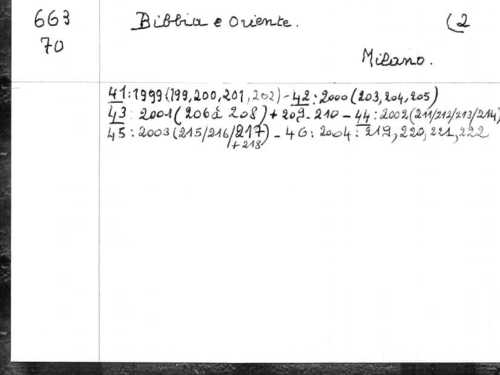 663 Bibbia e Oriente. (2
70
Milano.
41:1999(199,200,201,202)-42:2000(203,204,205)
43: 2001(206à 208)+209-210-44:2002(211/212/213/214)
45:2003(215/216/217)-46:2004:219,220,221,222
+218